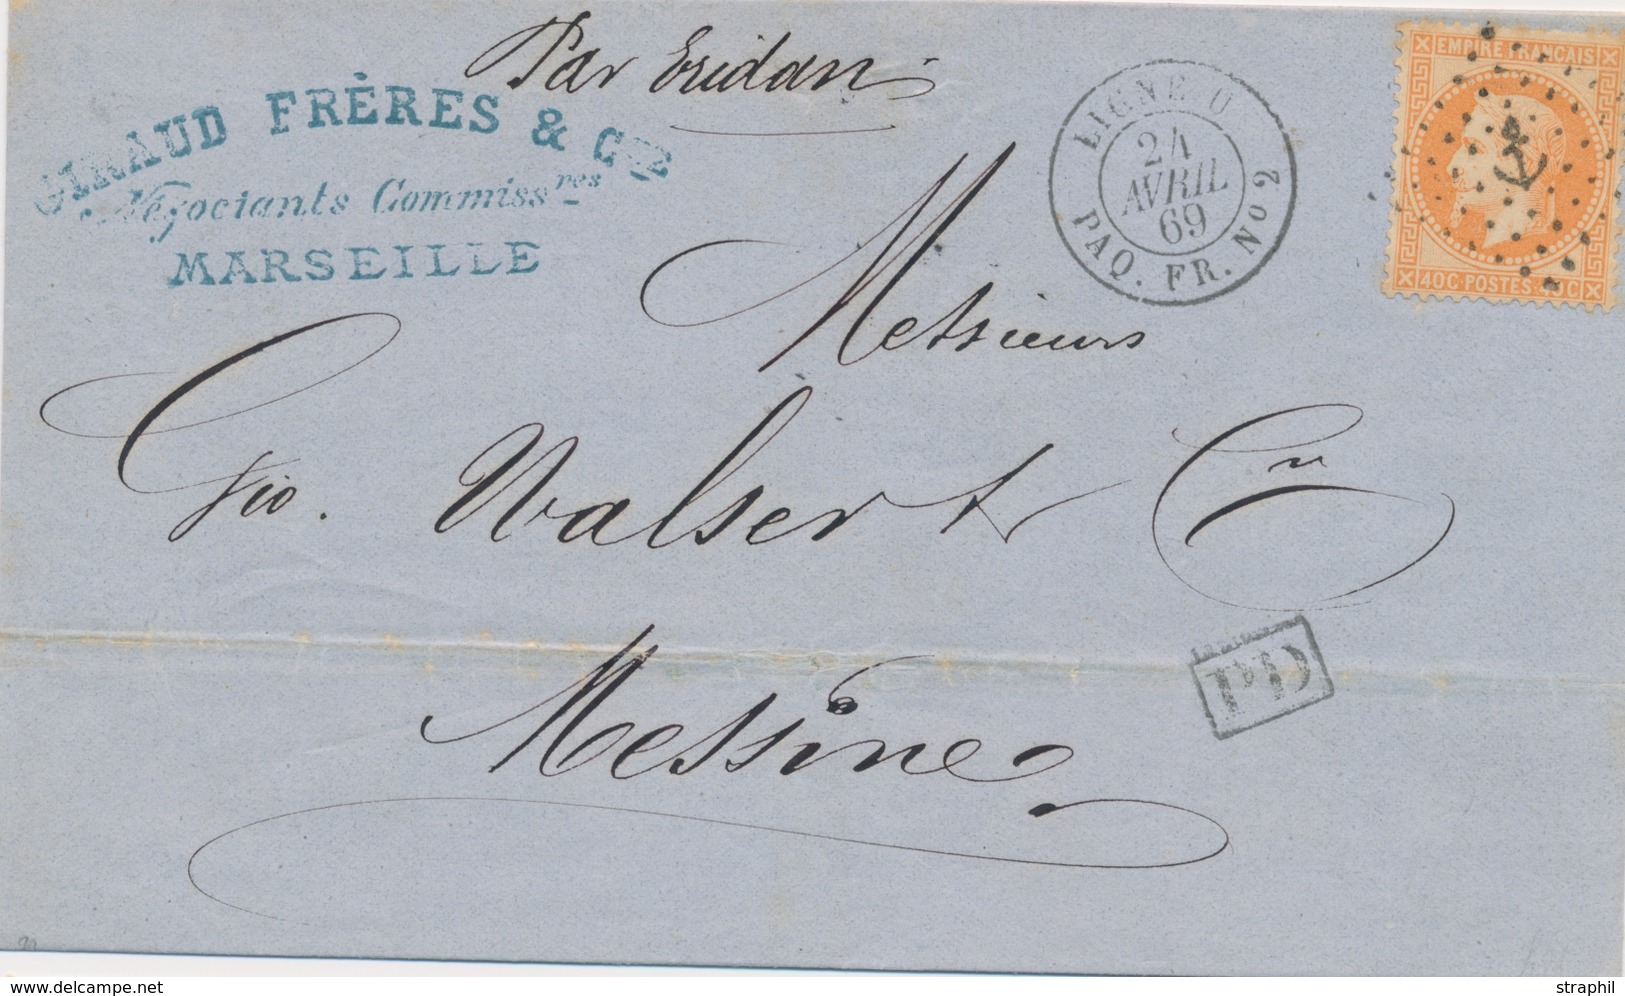 Par Eridan
GIRAUD FRÈRES & Cie
Négociants Commissres
MARSEILLE
LIGNE U
24
AVRIL
69
PAQ. FR. No 2
EMPIRE FRANCAIS
40C POSTES 40C
Messieurs
Gio. Walser & Cie
PD
Messine
delcampe.net
straphil